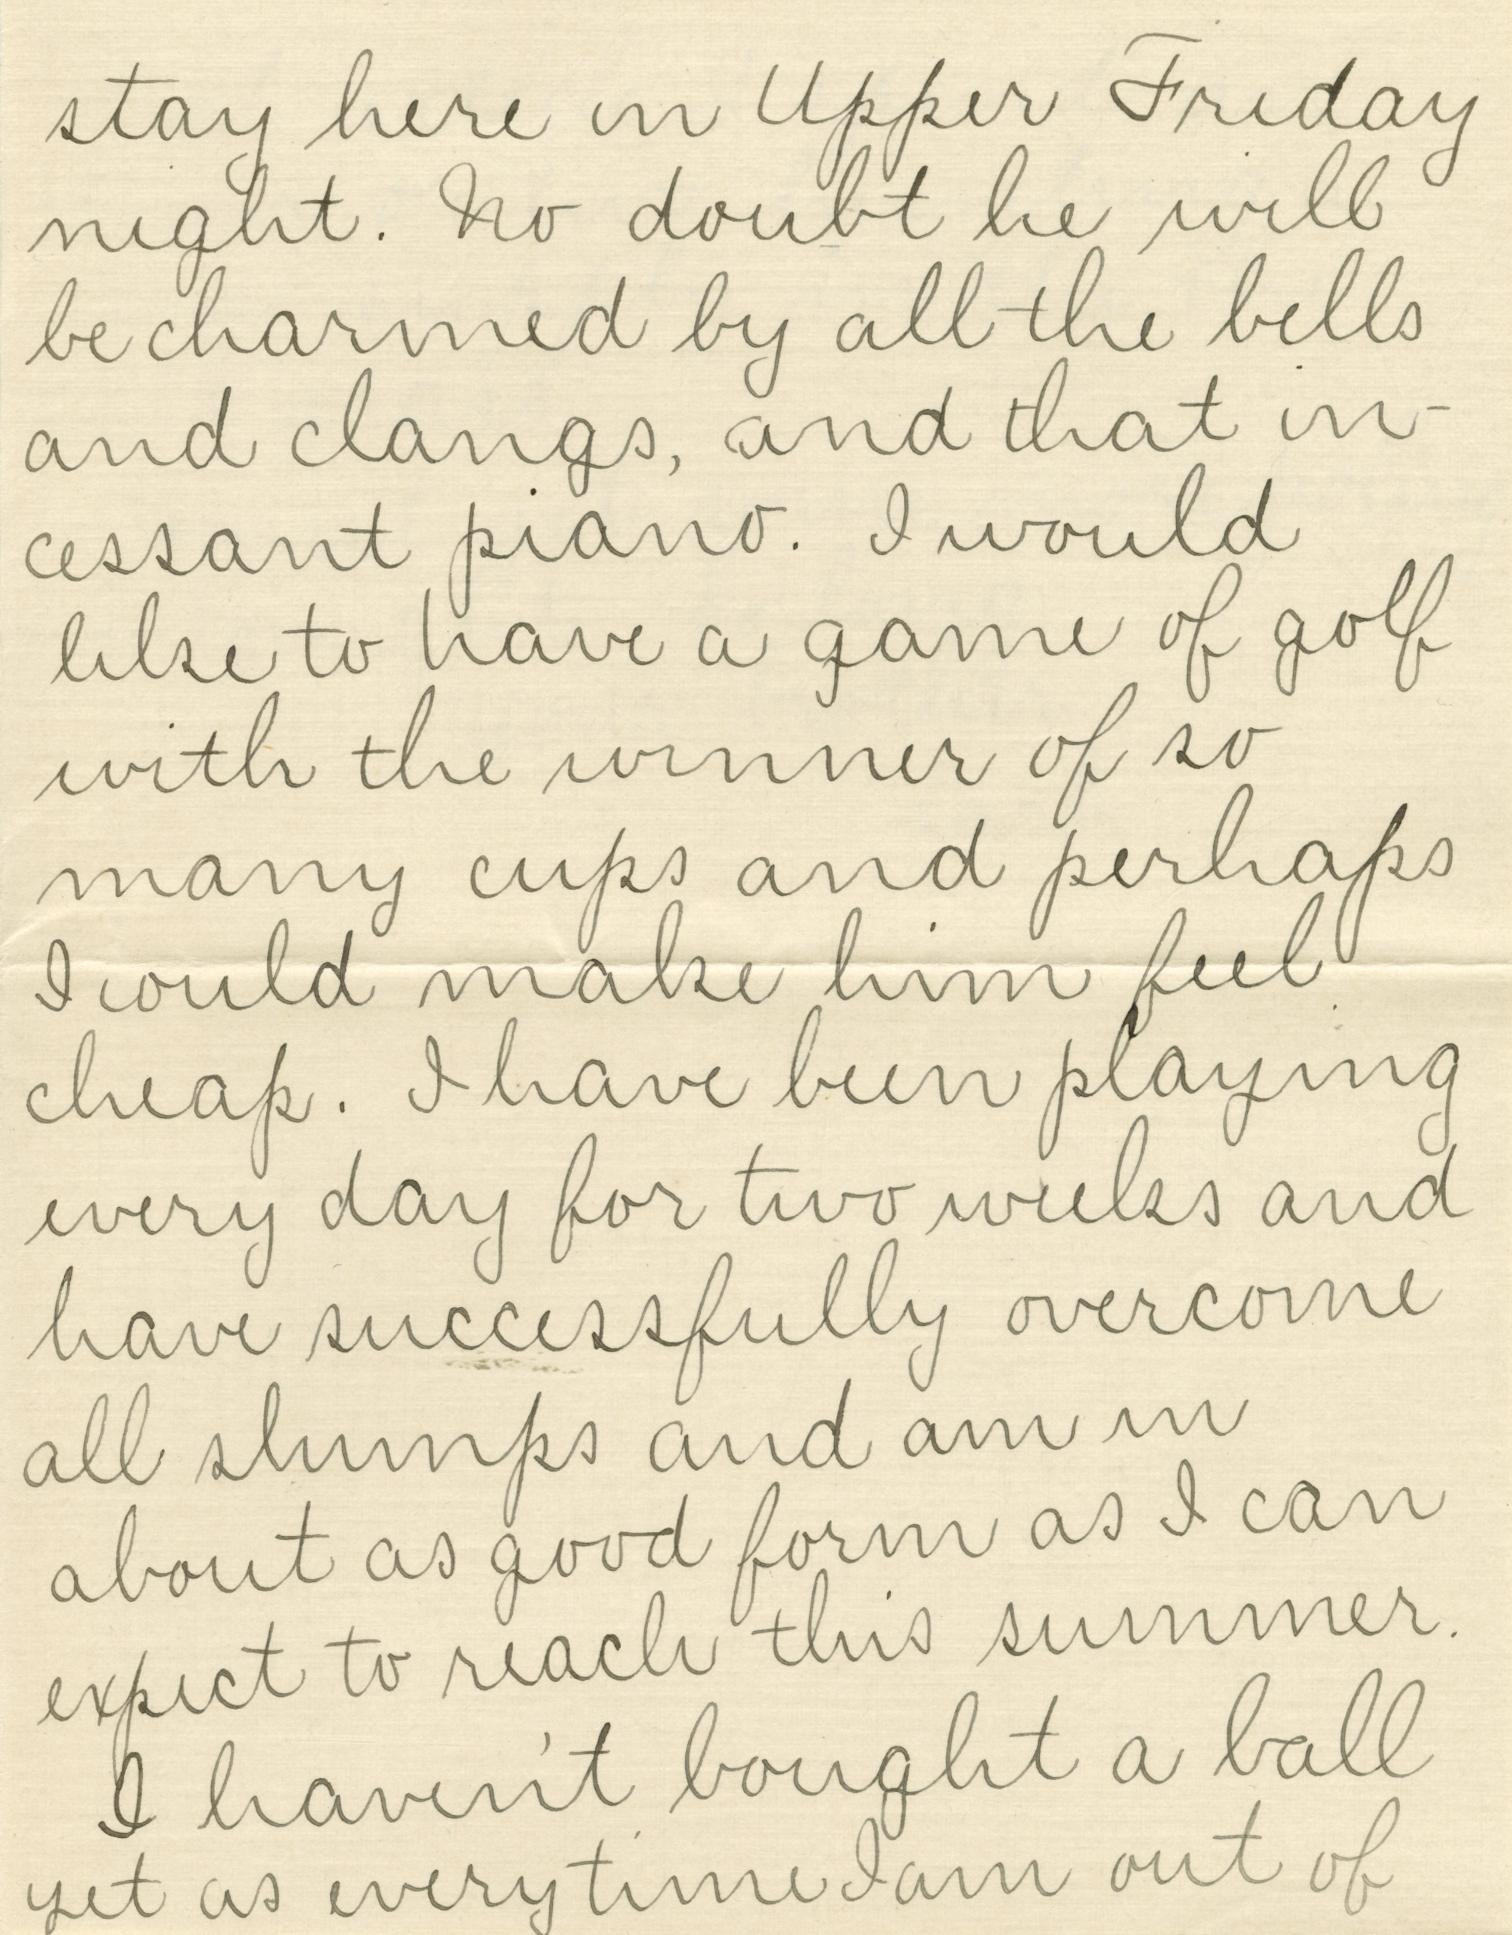 stay here in Upper Friday
night. No doubt he will
be charmed by all the bells
and clangs, and that in-
cessant piano. I would
like to have a game of golf
with the winner of so
many cups and perhaps
I would make him feel
cheap. I have been playing
every day for two weeks and
have successfully overcome
all slumps and am in
about as good form as I can
expect to reach this summer.
I haven't bought a ball
yet as every time I am out of